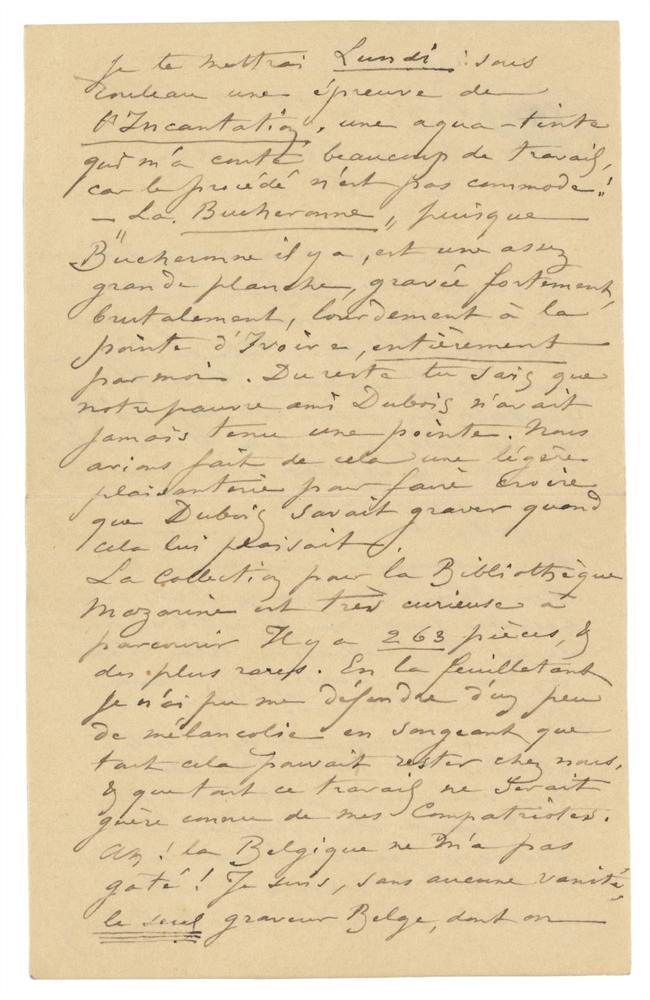 Je te mettrai Lundi : sous
rouleau une épreuve de
l'Incantation, une aqua-tinte
qui m'a couté beaucoup de travail,
car le procédé n'est pas commode !
— La Bucheronne „ puisque
"Bucheronne il y a, est une assez
grande planche, gravée fortement,
brutalement, lourdement à la
pointe d'Ivoire, entièrement
par moi. Du reste tu sais que
notre pauvre ami Dubois n'avait
jamais tenu une pointe. Nous
avions fait de cela une légère
plaisanterie pour faire croire
que Dubois savait graver quand
cela lui plaisait.
La Collection pour la Bibliothèque
Mazarine est très curieuse à
parcourir Il y a 263 pièces, &
des plus rares. En la feuilletant
je n'ai pu me défendre d'un peu
de mélancolie en songeant que
tout cela pouvait rester chez nous,
& que tout ce travail ne serait
guère connu de mes Compatriotes.
Ah ! la Belgique ne m'a pas
gâté ! Je suis, sans aucune vanité,
le seul graveur Belge, dont on